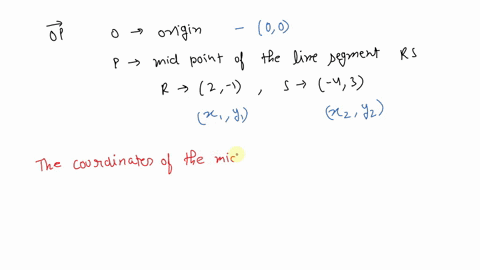 OP O → origin - (0,0)
P → mid point of the line segment RS
R → (2,-1) , S → (-4,3)
(x₁, y₁) (x₂, y₂)
The coordinates of the mid